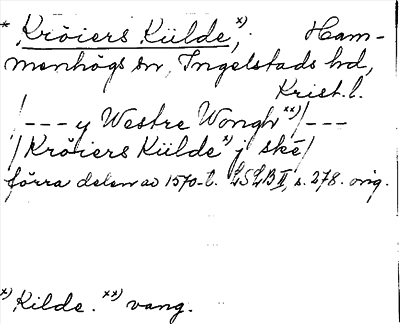 * Kröiers Külde, *) Ham-
menhögs sn, Ingelstads hd,
Krist. l.
/--- y Westre Wongh **)/---
/Kröiers Külde *) j ske/
förra delen av 1570-t. LSLB II, s. 278. orig.
*) Kilde. **) vang.